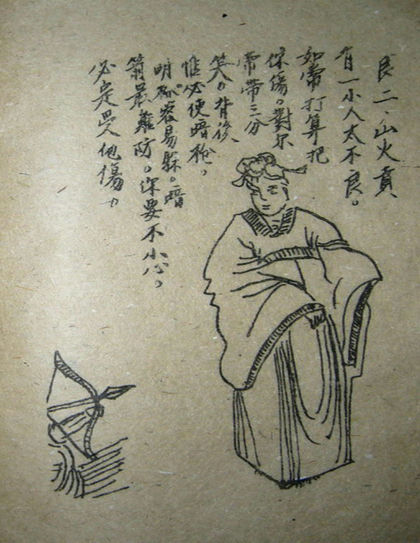 艮二、山火賁
有一小人太不良。
如常打算把
你傷。對尔
常帶三分
笑。背後
惟必使暗枪，
明容易躲。暗
箭最難防。深要不小心。
必定受他傷